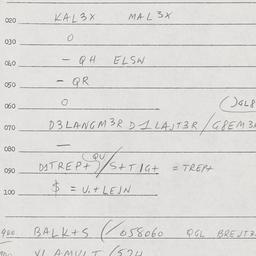 020 KAL3X MAL3X
030 O
040 - QH ELSN
050 - QR
060 O
070 D3LANGM3R D1LAJT3R/G8EM3
080 —
(QU)
090 D3TREP+/S+TIG+ =TREP+
100 $ = U.+LEJN
900 BALK+S (/058060 QGL BREJT3